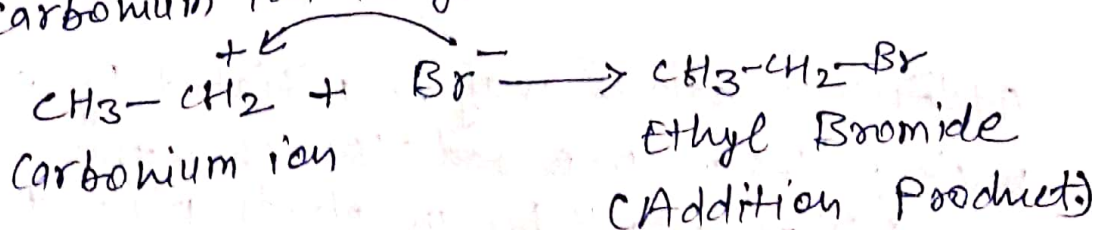 CH3-CH2⁺ + Br⁻ ⟶ CH3-CH2-Br
Carbonium ion Ethyl Bromide
(Addition Product)